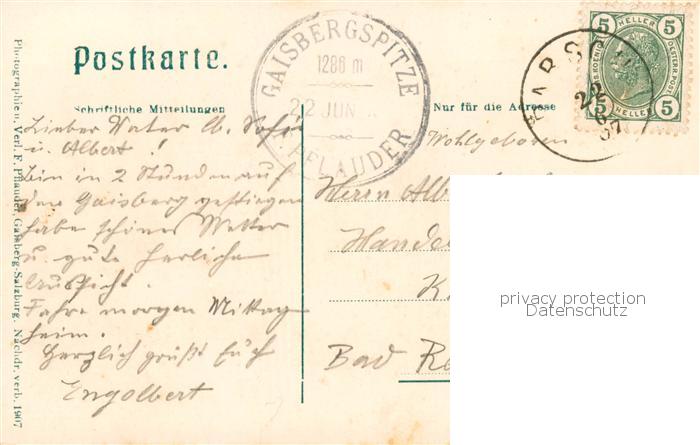 Postkarte.
GAISBERGSPITZE
1286 m
22 JUN
PFLAUDER
5 HELLER 5
5 HELLER 5
22
6
07
Schriftliche Mitteilungen
Nur für die Adresse
Lieber Vater lb. Sofie
u. Albert!
Bin in 2 Stunden auf
den Gaisberg gestiegen
habe schönes Wetter
u. gute herliche
Aussicht.
Fahre morgen Mittag
heim.
Herzlich grüßt Euch
Engelbert
Wohlgeboren
Herrn Alb
Handel
K.
Bad Re
privacy protection
Datenschutz
Photographie u. Verl. F. Pflauder, Gaisberg-Salzburg. Nachdr. verb. 1907